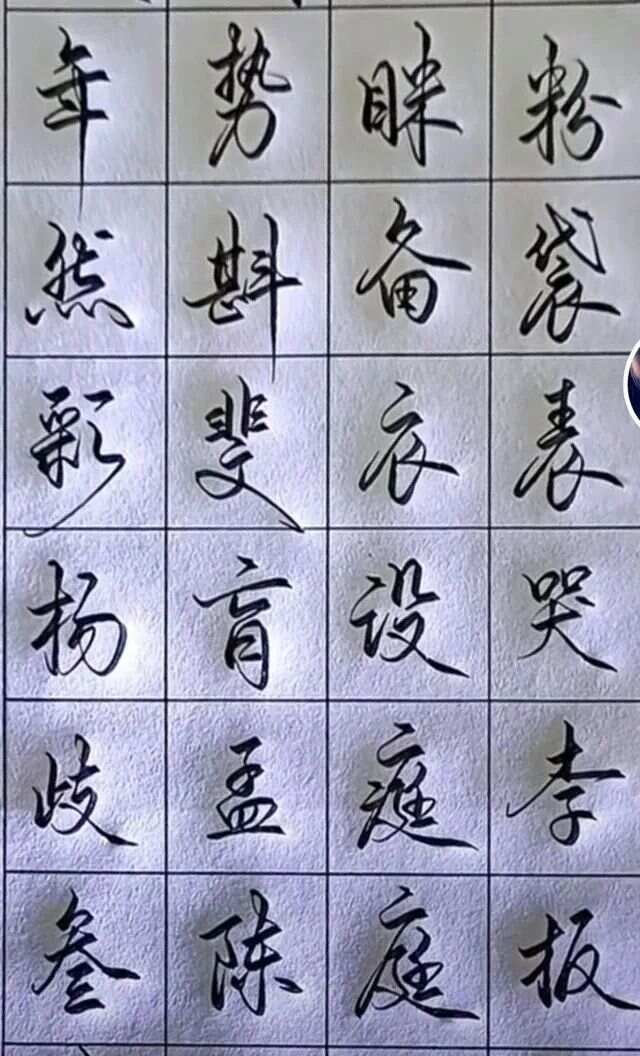 年 势 眯 粉
然 斟 备 袋
彩 斐 衣 表
杨 肓 设 哭
歧 孟 庭 李
叁 陈 庭 板